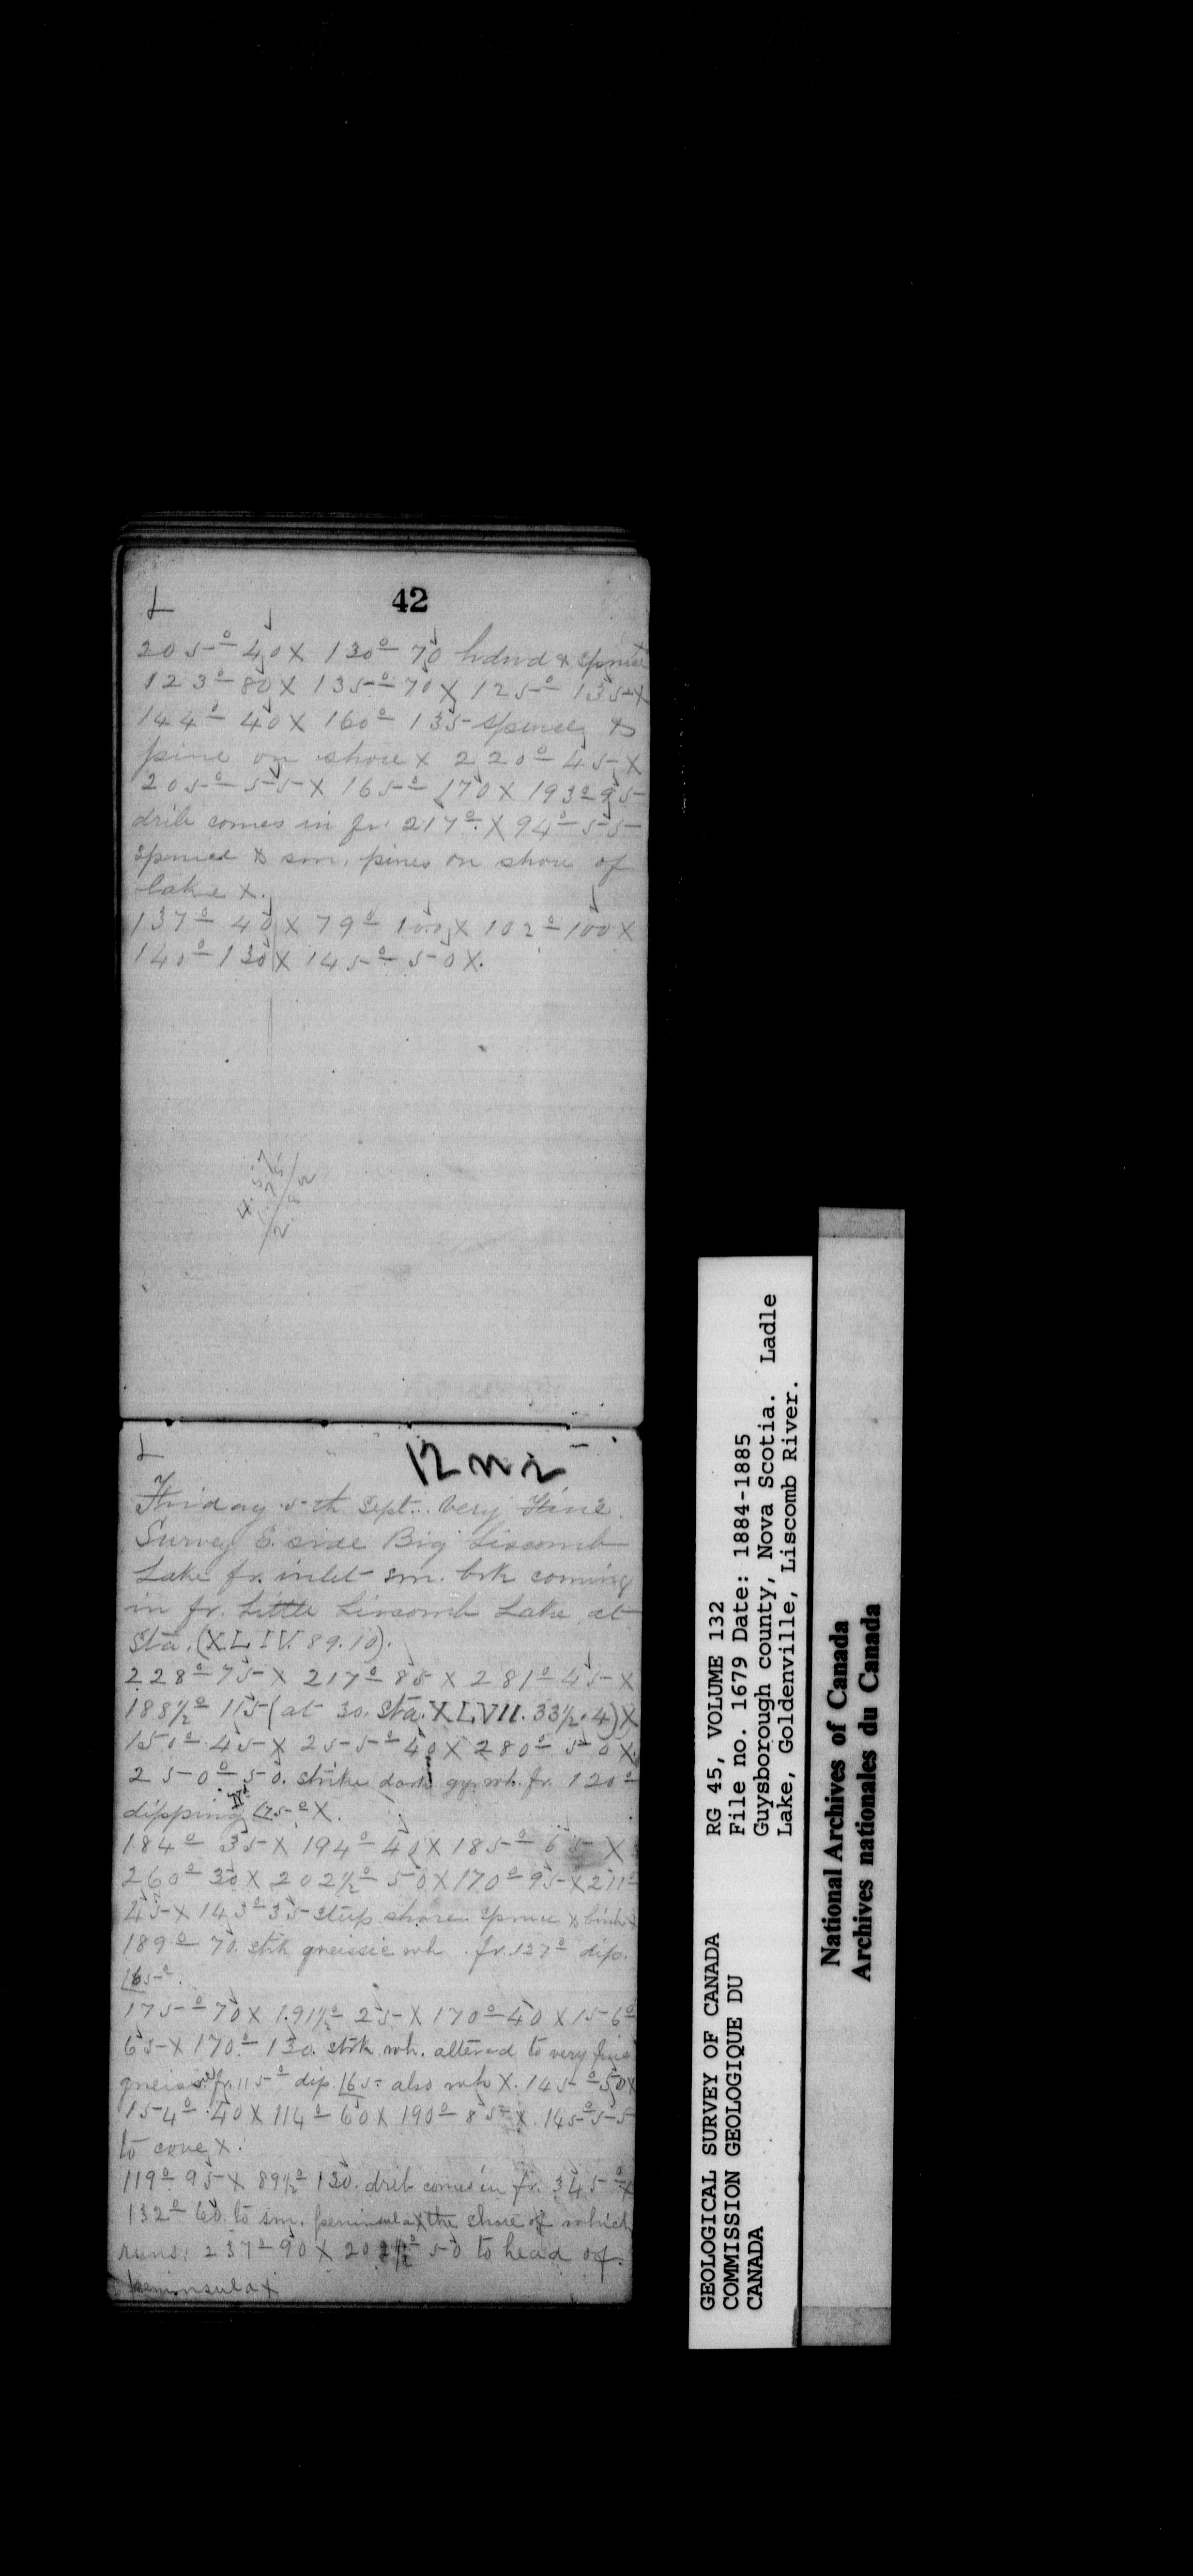 L
42
205º 40 X 130º 70 hdwd & spruce X
123º 80 X 135º 70 X 125º 135 X
144º 40 X 160º 135 spruce &
pine on shore X 220º 45 X
205º 55 X 165º 170 X 193º 95
drib comes in fr. 217º. X 94º 55
spruce & sm. pines on shore of
lake X.
137º 40 X 79º 100 X 102º 100 X
140º 130 X 145º 50 X.
L
Friday 5th Sept. Very Fine.
Survey E. side Big Liscomb
Lake fr. inlet sm. brk coming
in fr. Little Liscomb Lake at
Sta. (XLIV. 89.10).
228º 75 X 217º 85 X 281º 45 X
188½º 115 (at 30. Sta. XLVII. 33½.4) X
150º 45 X 255º 40 X 280º 50 X.
250º 50. strike dark gy. wh. fr. 120º
dipping N 75º X.
184º 35 X 194º 40 X 185º 65 X
260º 30 X 202½º 50 X 170º 95 X 211º
45 X 143º 35 steep shore spruce & birch X
189º 70. strk gneissic wh. fr. 127º dip.
65º.
175º 70 X 191½º 25 X 170º 40 X 156º
65 X 170º 130. strk wh. altered to very fine
gneiss fr. 115º dip. 65º also wh X. 145º 50 X
154º 40 X 114º 60 X 190º 85 X. 145º 55
to cove X.
119º 95 X 89½º 130. drib comes in fr. 345º X
132º 60. to sm. peninsula X the shore of which
runs: 237º 90 X 202½º 50 to head of
peninsula X
GEOLOGICAL SURVEY OF CANADA
COMMISSION GEOLOGIQUE DU
CANADA
RG 45, VOLUME 132
File no. 1679 Date: 1884-1885
Guysborough county, Nova Scotia. Ladle
Lake, Goldenville, Liscomb River.
National Archives of Canada
Archives nationales du Canada